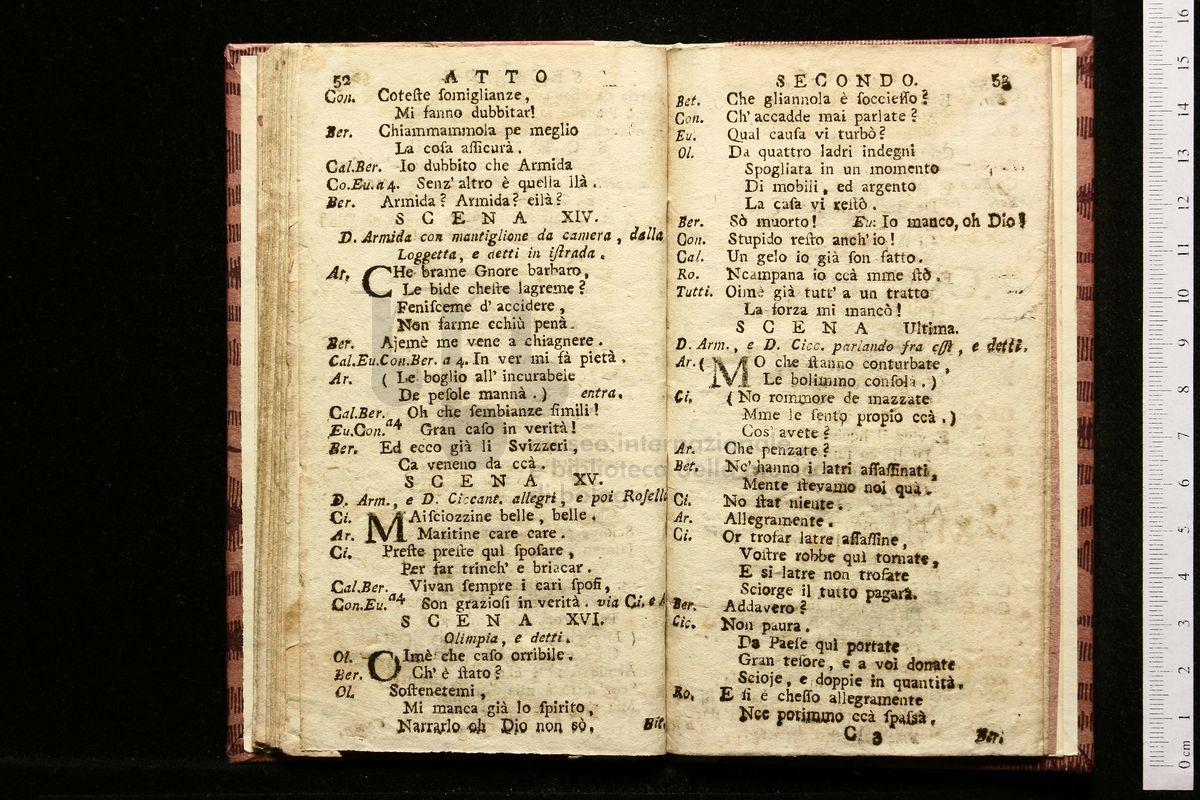 52 ATTO
Con. Coteſte ſomiglianze,
Mi fanno dubbitar!
Ber. Chiammammola pe meglio
La coſa aſſicurà.
Cal.Ber. Io dubbito che Armida
Co.Eu.a 4. Senz' altro è quella llà.
Ber. Armida? Armida? eilà?
SCENA XIV.
D. Armida con mantiglione da camera, dalla
Loggetta, e detti in iſtrada.
Ar. CHe brame Gnore barbaro,
Le bide cheſte lagreme?
Feniſceme d' accidere,
Non farme cchiù penà.
Ber. Ajemè me vene a chiagnere.
Cal.Eu.Con.Ber. a 4. In ver mi fà pietà.
Ar. (Le boglio all' incurabele
De peſole mannà.) entra.
Cal.Ber. Oh che ſembianze ſimili!
Eu.Con. a4 Gran caſo in verità!
Ber. Ed ecco già li Svizzeri,
Ca veneno da ccà.
SCENA XV.
D. Arm., e D. Ciccant. allegri, e poi Roſell
Ci. MAiſciozzine belle, belle.
Ar. Maritine care care.
Ci. Preſte preſte qui ſpoſare,
Per far trinch' e briacar.
Cal.Ber. Vivan ſempre i cari ſpoſi,
Con.Eu. a4 Son grazioſi in verità. via Ci. e A
SCENA XVI.
Olimpia, e detti.
Ol. OImè che caſo orribile.
Ber. Ch' è ſtato?
Ol. Soſtenetemi,
Mi manca già lo ſpirito,
Narrarlo oh Dio non sò.
Bet.
SECONDO. 53
Bet. Che gliannola è ſoccieſſo?
Con. Ch' accadde mai parlate?
Eu. Qual cauſa vi turbò?
Ol. Da quattro ladri indegni
Spogliata in un momento
Di mobili, ed argento
La caſa vi reſtò.
Ber. Sò muorto! Eu: Io manco, oh Dio!
Con. Stupido reſto anch' io!
Cal. Un gelo io già ſon fatto.
Ro. Ncampana io ccà mme ſtò.
Tutti. Oimè già tutt' a un tratto
La forza mi mancò!
SCENA Ultima.
D. Arm., e D. Cicc. parlando fra eſſi, e detti.
Ar. (MO che ſtanno conturbate,
Le bolimmo conſolà.)
Ci. (No rommore de mazzate
Mme le ſento propio ccà.)
Cos' avete?
Ar. Che penzate?
Bet. Nc' hanno i latri aſſaſſinati,
Mente ſtevamo noi quà.
Ci. No ſtat niente.
Ar. Allegramente.
Ci. Or trofar latre aſſaſſine,
Voſtre robbe quì tornate,
E si latre non trofate
Sciorge il tutto pagarà.
Ber. Addavero?
Cic. Non paura.
Da Paeſe quì portate
Gran teſore, e a voi donate
Scioje, e doppie in quantità.
Ro. E ſi è cheſſo allegramente
Nce potimmo ccà ſpaſsà.
C 3 Ber.
museo internazionale
e biblioteca della